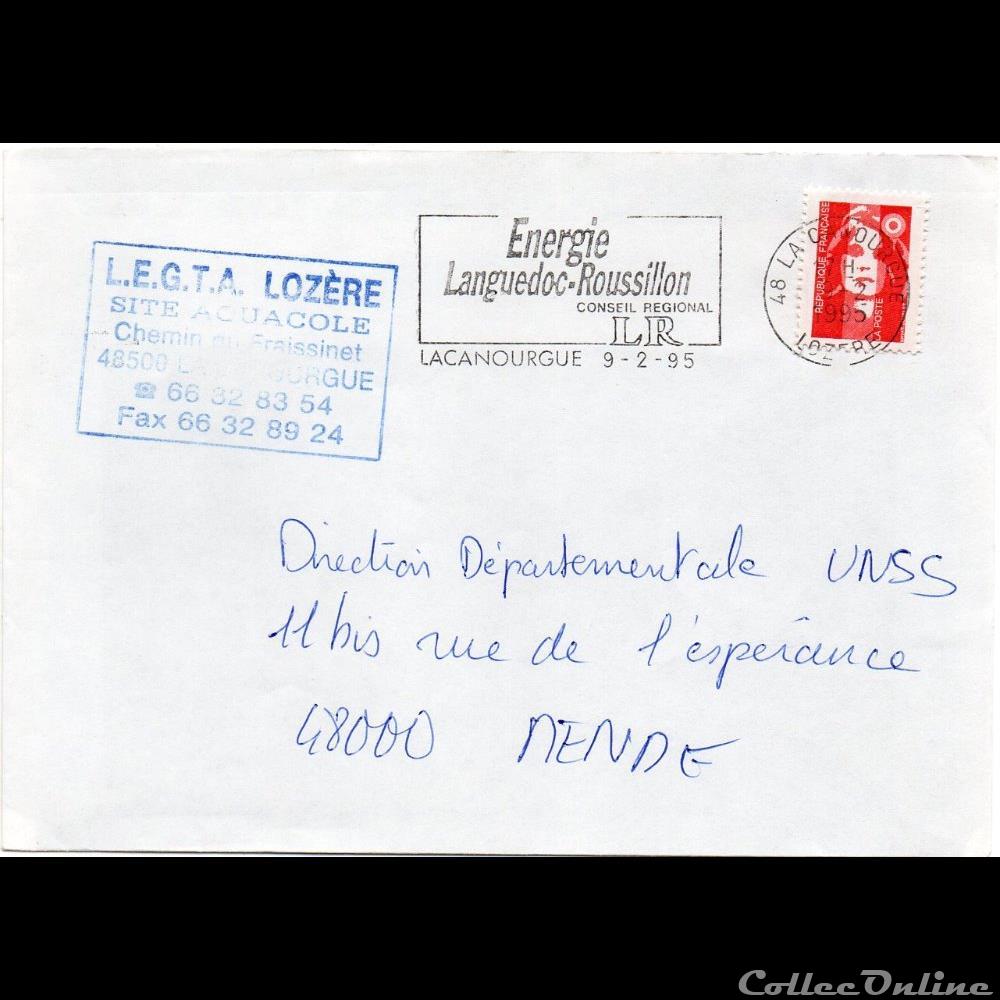 L.E.G.T.A. LOZÈRE
SITE AQUACOLE
Chemin du Fraissinet
48500 LA CANOURGUE
☎ 66 32 83 54
Fax 66 32 89 24
Energie
Languedoc-Roussillon
CONSEIL REGIONAL
LR
LACANOURGUE 9-2-95
48 LA CANOURGUE
1995
LOZERE
REPUBLIQUE FRANÇAISE
LA POSTE
Direction Départementale UNSS
11 bis rue de l'éspérance
48000 MENDE
CollecOnline